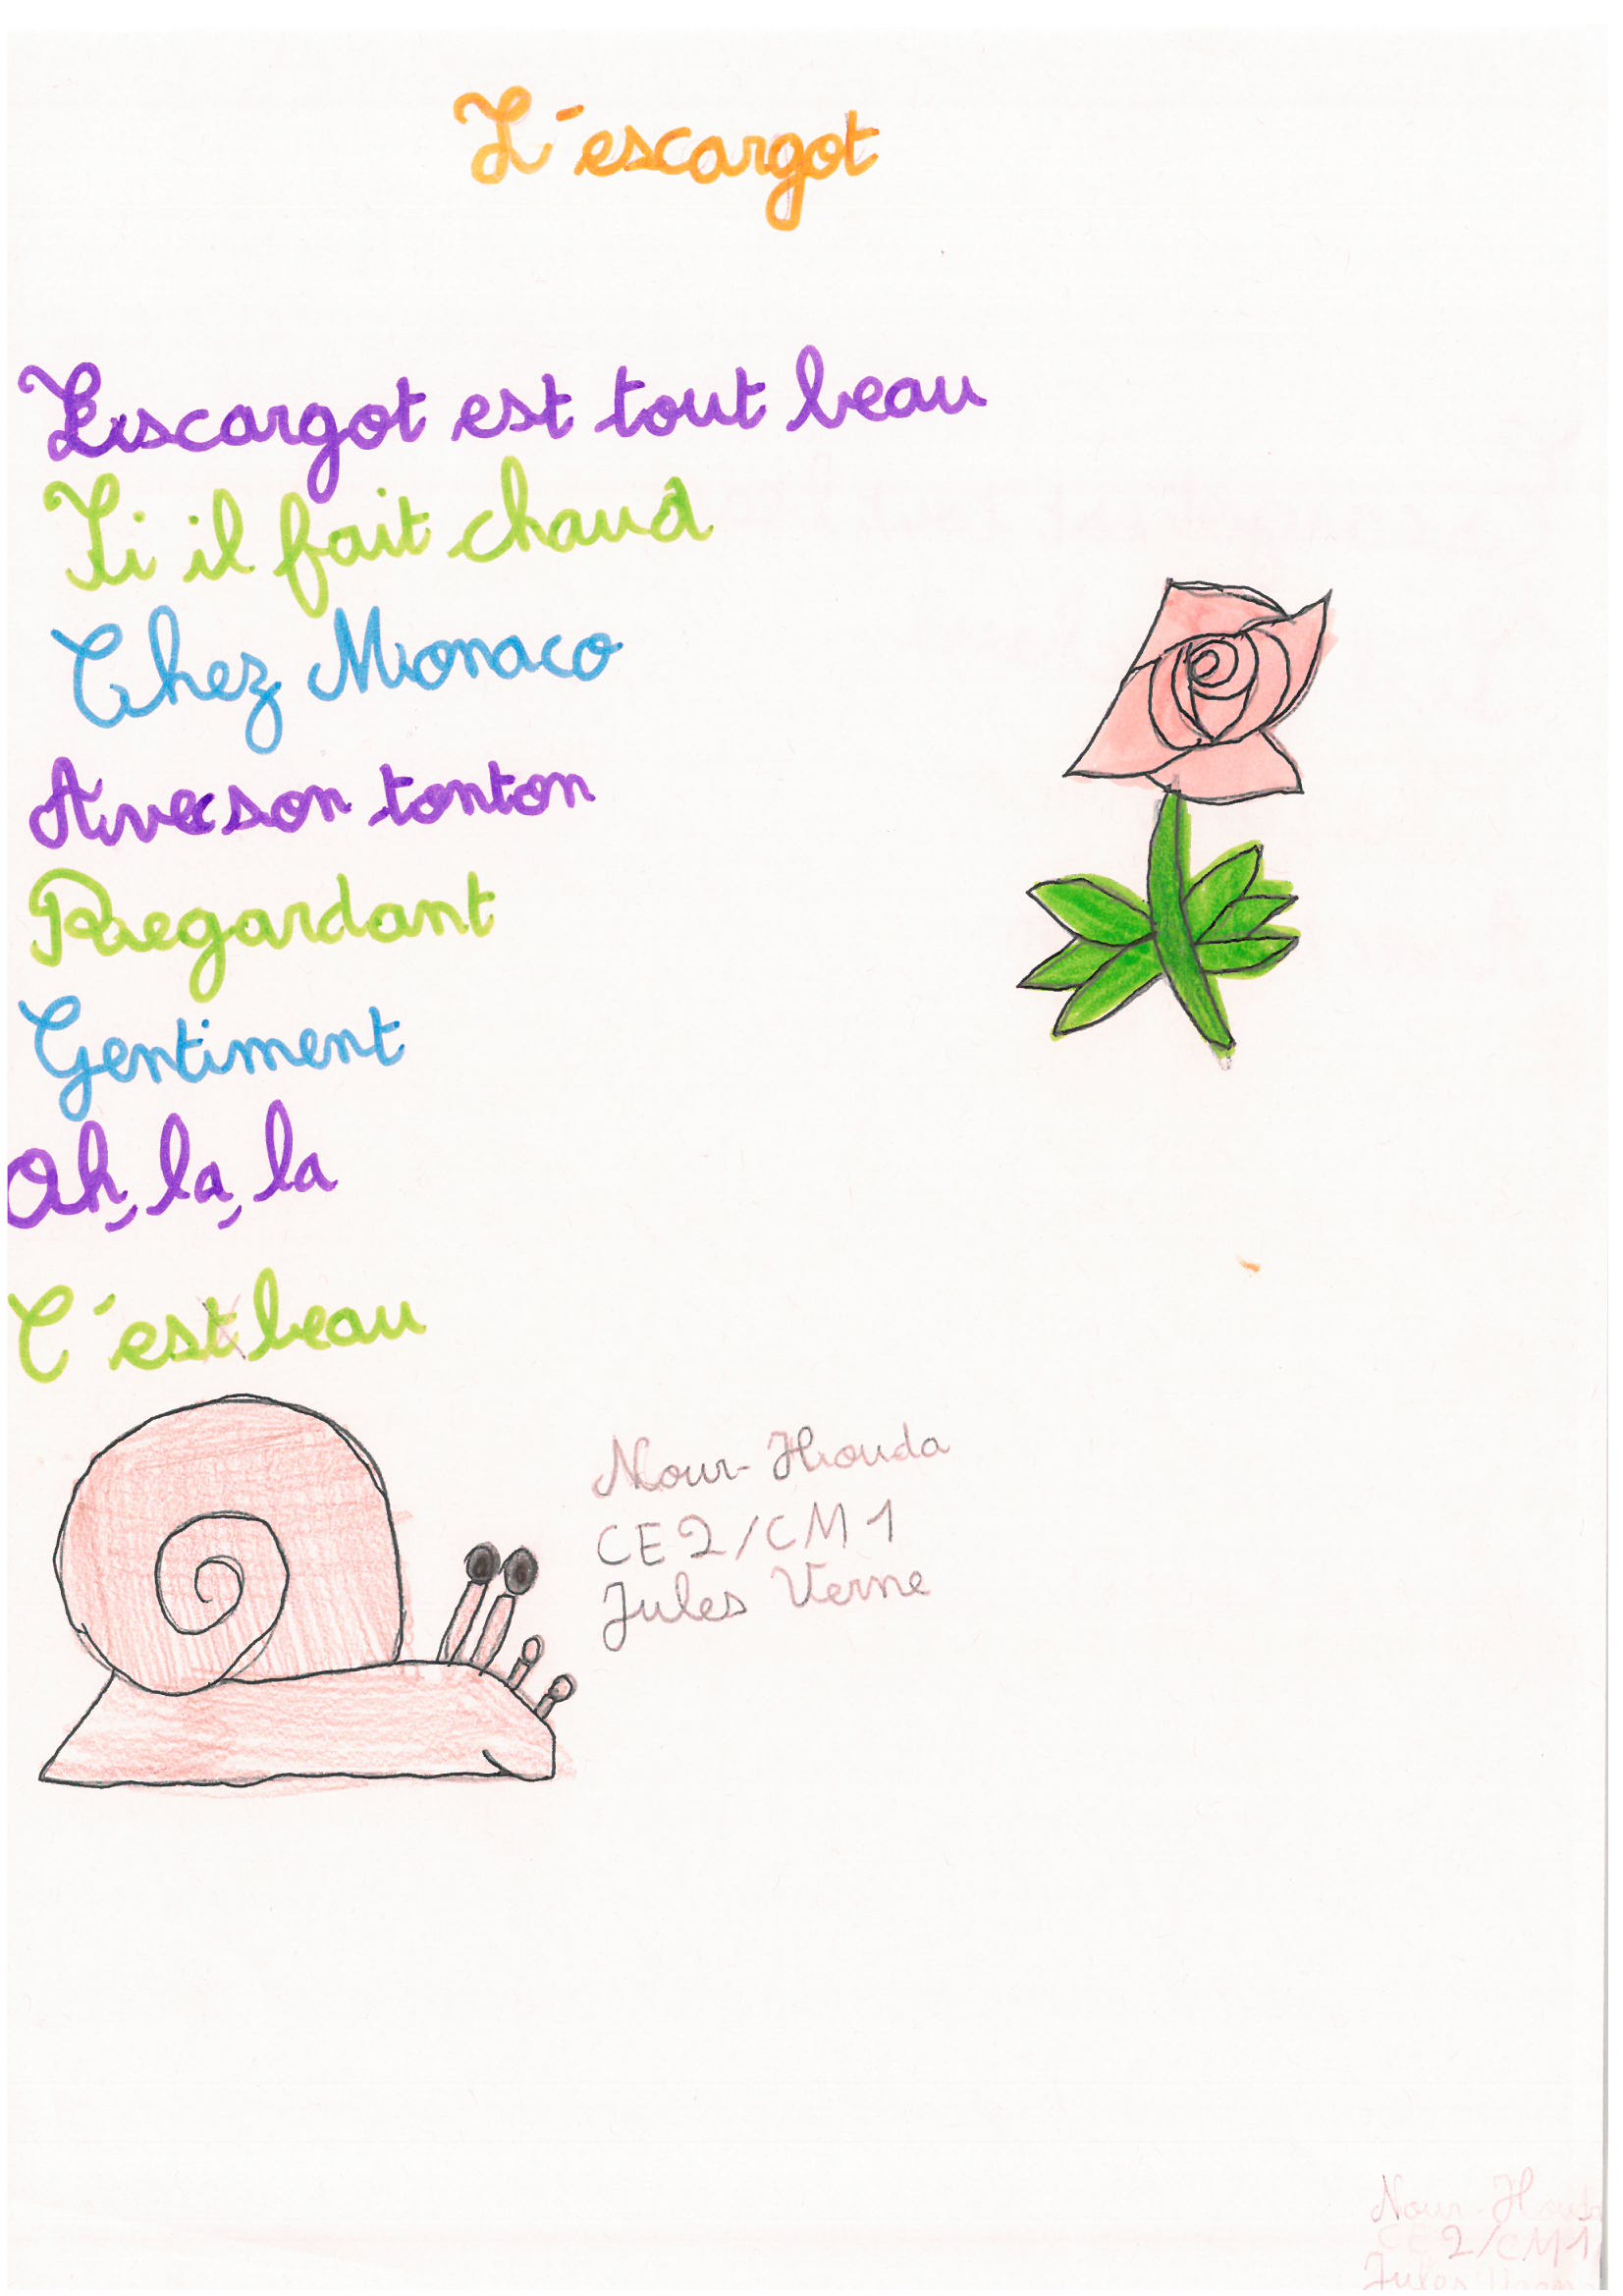 L'escargot
Lescargot est tout beau
Si il fait chaud
Chez Monaco
Avec son tonton
Regardant
Gentiment
Oh, la, la
C'est beau
Nour-Houda
CE2/CM1
Jules Verne
Nour-Houda
CE2/CM1
Jules Verne